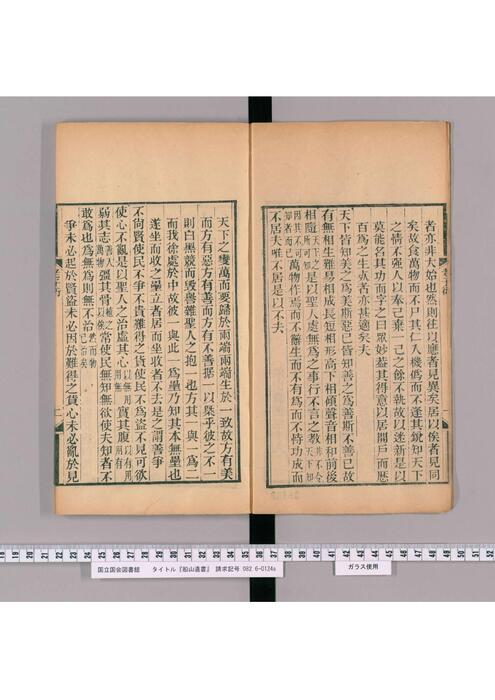 者亦非天始也然則往以應者見異矣居以俟者見同
矣故食萬物而不尸其仁人機僞而不逢其銳知天下
之情不强人以奉己棄一己之餘不執故以迷新是以
莫能名其功而字之曰眾妙蓋其得意以居開戶而歷
百爲之生死者亦甚適矣夫
天下皆知美之爲美斯惡已皆知善之爲善斯不善已故
有無相生難易相成長短相形高下相傾聲音相和前後
相隨是以聖人處無爲之事行不言之教
萬物作焉而不辭生而不有爲而不恃功成而
不居夫唯不居是以不去
天下之變萬而要歸於兩端兩端生於一致故方有美
而方有惡方有善而方有不善據一以槩乎彼之不一
則白黑競而毀譽雜聖人之抱一也方其一與一爲二
而我徐處於中故彼一與此一爲壘乃知其本無壘也
遂坐而收之壘立者居而坐收者不去是之謂善爭
不尚賢使民不爭不貴難得之貨使民不爲盜不見可欲
使心不亂是以聖人之治虛其心實其腹
弱其志强其骨常使民無知無欲使夫知者不
敢爲也爲無爲則無不治
爭未必起於賢盜未必因於難得之貨心未必亂於見
18 19 20 21 22 23 24 25 26 27 28 29 30 31 32 33 34 35 36 37 38 39 40 41 42 43 44 45 46 47 48 49 50 51 52
国立国会図書館 タイトル『船山遺書』 請求記号 082.6-O124s
ガラス使用